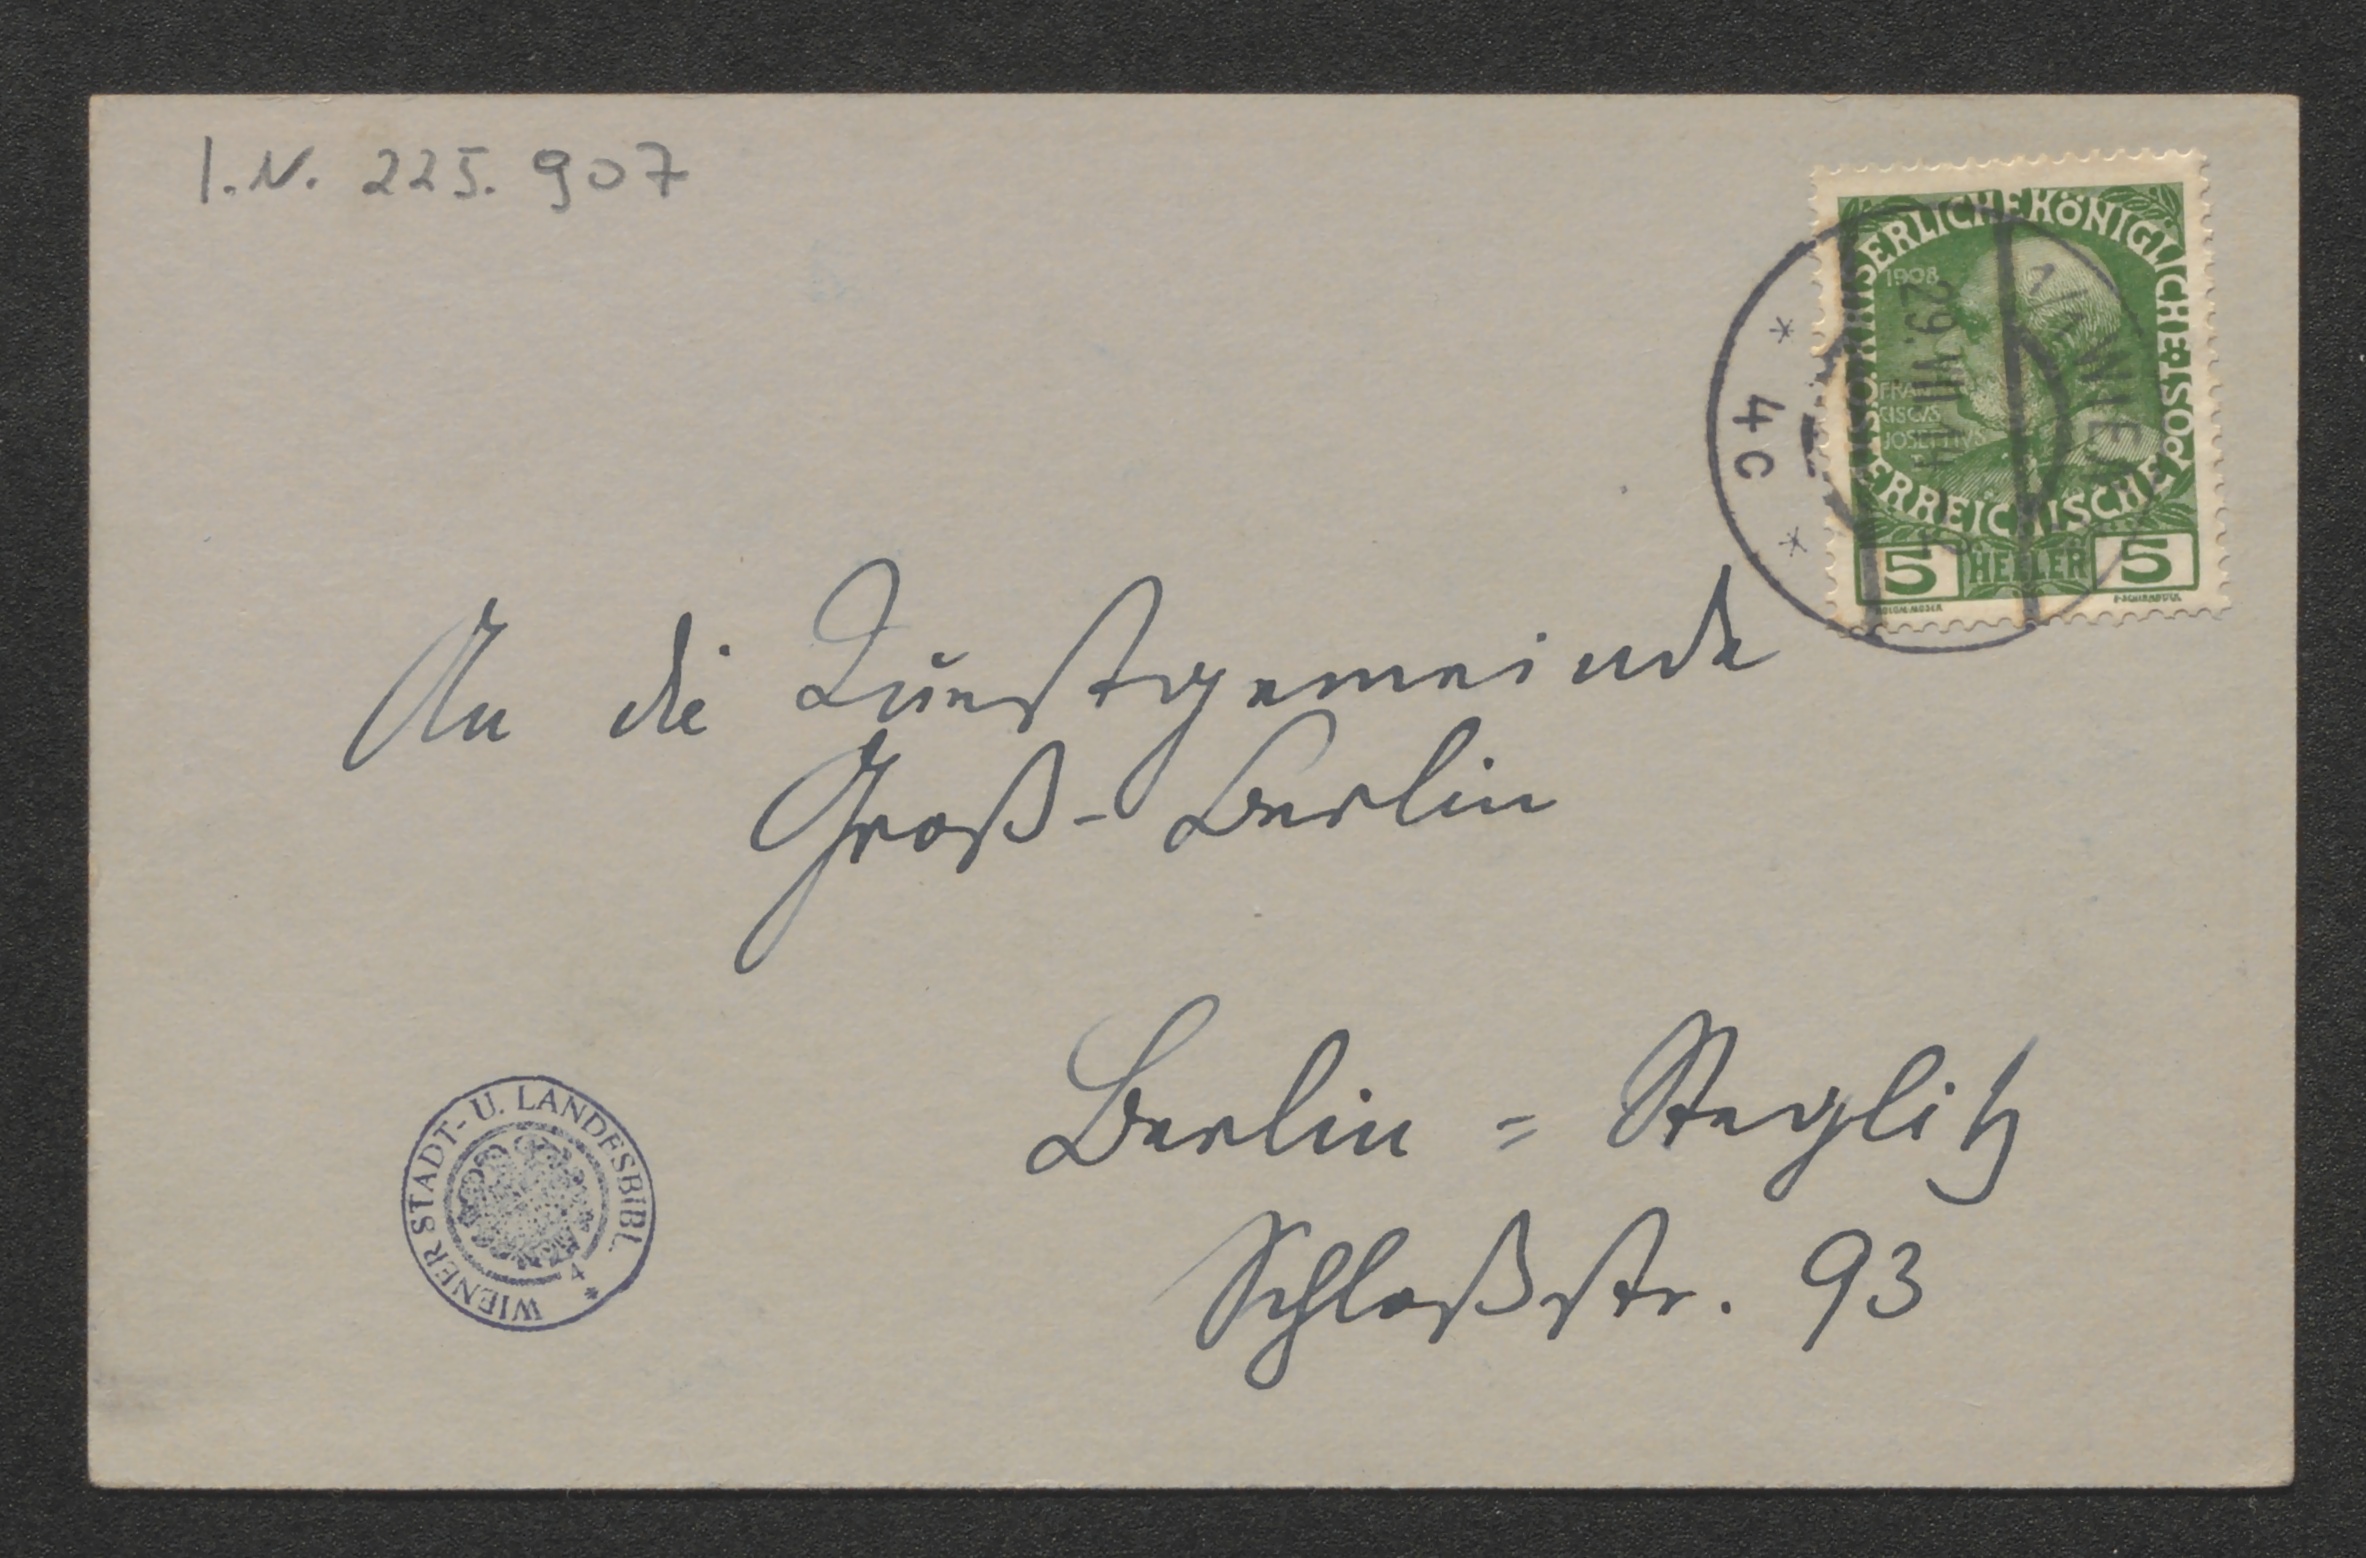 I.N. 225.907
KAISERLICHE KÖNIGLICHE ÖSTERREICHISCHE POST
1908
FRAN
CISCVS
JOSEPHVS
5 HELLER 5
WIEN
29.VII.14
4c
An die Kunstgemeinde
Groß-Berlin
Berlin = Steglitz
Schloßstr. 93
WIENER STADT- U. LANDESBIBL.